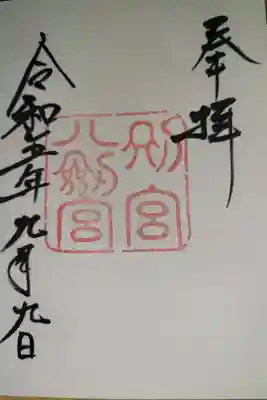 奉拝
別宮
八剱宮
令和五年九月九日